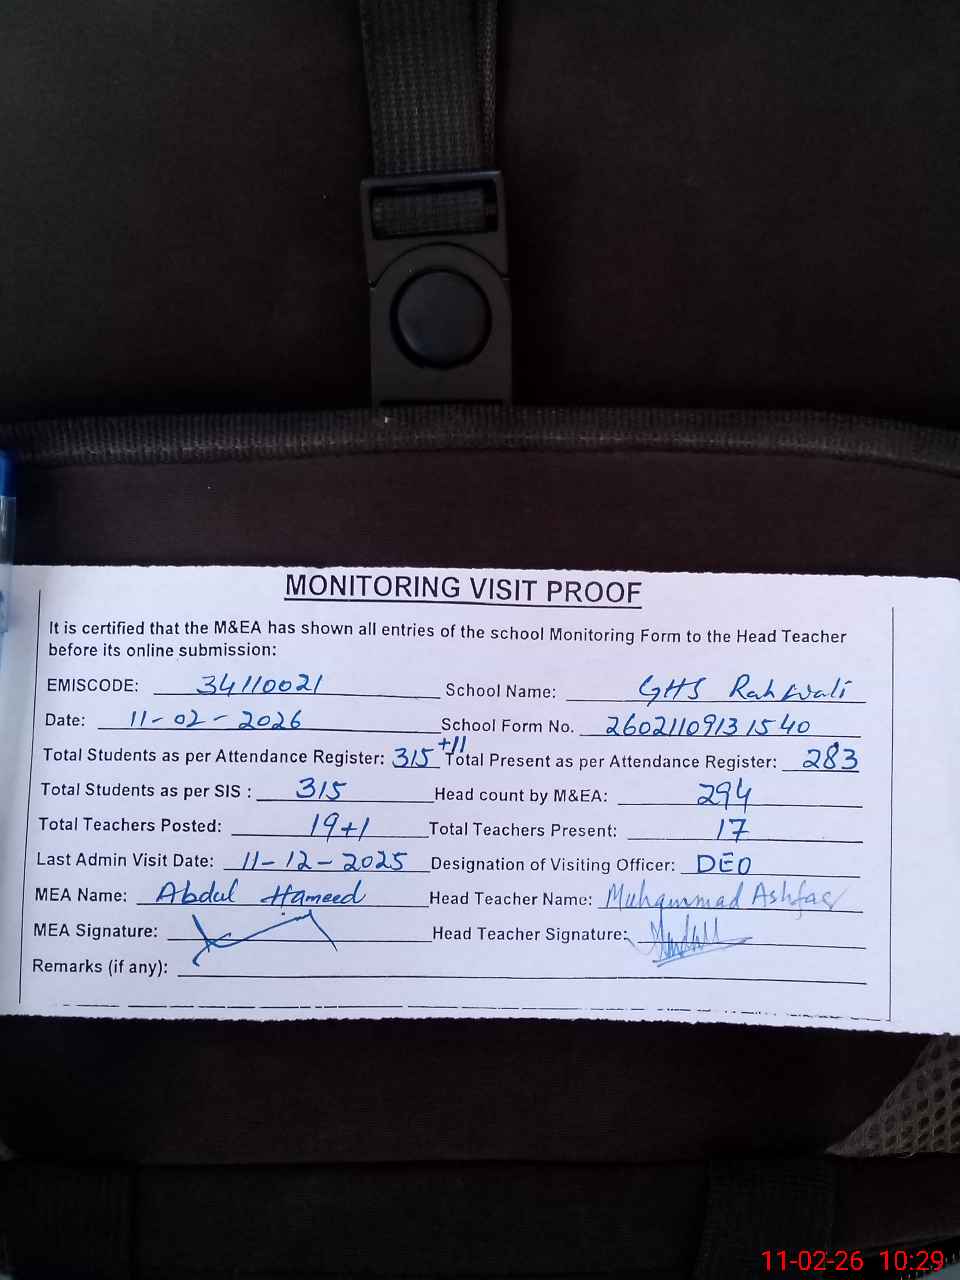 MONITORING VISIT PROOF
It is certified that the M&EA has shown all entries of the school Monitoring Form to the Head Teacher
before its online submission:
EMISCODE: 34110021 School Name: GHS Rahwali
Date: 11-02-2026 School Form No. 26021109131540
Total Students as per Attendance Register: 315+11 Total Present as per Attendance Register: 283
Total Students as per SIS : 315 Head count by M&EA: 294
Total Teachers Posted: 19+1 Total Teachers Present: 17
Last Admin Visit Date: 11-12-2025 Designation of Visiting Officer: DEO
MEA Name: Abdul Hameed Head Teacher Name: Muhammad Ashfaq
MEA Signature: Head Teacher Signature:
Remarks (if any):
11-02-26 10:29